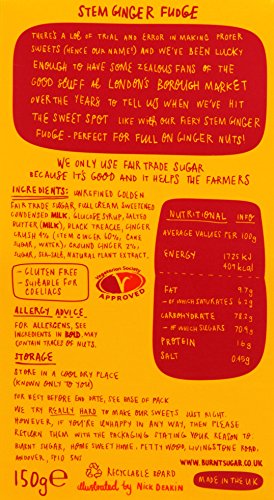 STEM GINGER FUDGE
THERE'S A LOT OF TRIAL AND ERROR IN MAKING PROPER
SWEETS (HENCE OUR NAME!) AND WE'VE BEEN LUCKY
ENOUGH TO HAVE SOME ZEALOUS FANS OF THE
GOOD STUFF AT LONDON'S BOROUGH MARKET
OVER THE YEARS TO TELL US WHEN WE'VE HIT
THE SWEET SPOT LIKE WITH OUR FIERY STEM GINGER
FUDGE - PERFECT FOR FULL ON GINGER NUTS!
WE ONLY USE FAIRTRADE SUGAR
BECAUSE IT'S GOOD AND IT HELPS THE FARMERS
INGREDIENTS: UNREFINED GOLDEN
FAIRTRADE SUGAR, FULL CREAM, SWEETENED
CONDENSED MILK, GLUCOSE SYRUP, SALTED
BUTTER (MILK), BLACK TREACLE, GINGER
CRUSH 4% (STEM GINGER 60%, CANE
SUGAR, WATER), GROUND GINGER 2%,
SUGAR, SEA-SALT, NATURAL PLANT EXTRACT.
- GLUTEN FREE
- SUITABLE FOR
COELIACS
Vegetarian Society
APPROVED
ALLERGY ADVICE.
FOR ALLERGENS, SEE
INGREDIENTS IN BOLD. MAY
CONTAIN TRACES OF NUTS.
STORAGE
STORE IN A COOL DRY PLACE
(KNOWN ONLY TO YOU)
NUTRITIONAL INFO:
AVERAGE VALUES PER 100g
ENERGY 1725 KJ
409 kcal
FAT 9.7g
- OF WHICH SATURATES 6.2g
CARBOHYDRATE 78.2g
- OF WHICH SUGARS 70.9g
PROTEIN 1.6g
SALT 0.45g
FOR BEST BEFORE END DATE, SEE BASE OF PACK
WE TRY REALLY HARD TO MAKE OUR SWEETS JUST RIGHT.
HOWEVER, IF YOU'RE UNHAPPY IN ANY WAY, THEN PLEASE
RETURN THEM WITH THE PACKAGING STATING YOUR REASON TO
BURNT SUGAR, HOME SWEET HOME, PETTY WOOD, LIVINGSTONE ROAD,
ANDOVER, SP10 5NS
WWW.BURNTSUGAR.CO.UK
150g e
RECYCLABLE BOARD
illustrated by NICK DEAKIN
MADE IN THE UK